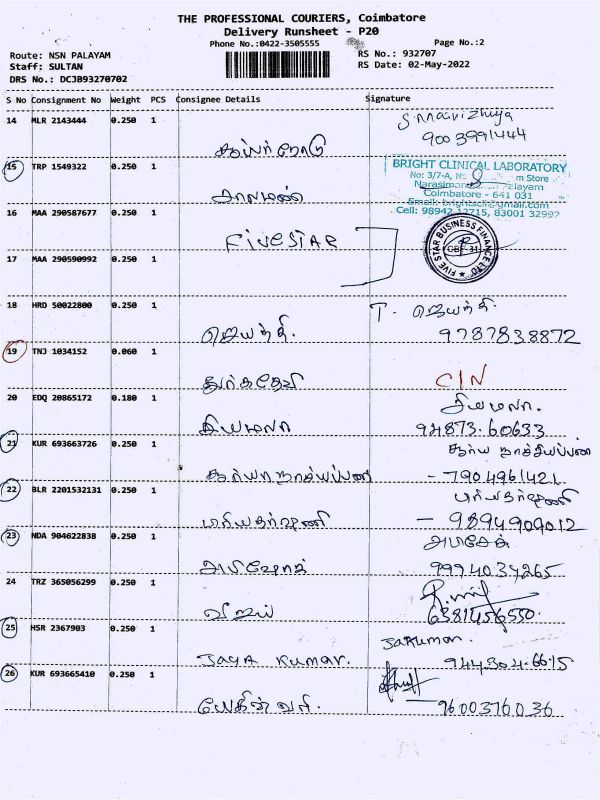 THE PROFESSIONAL COURIERS, Coimbatore
Delivery Runsheet - P20
Phone No.:0422-3505555
Page No.:2
Route: NSN PALAYAM
RS No.: 932707
Staff: SULTAN
RS Date: 02-May-2022
DRS No.: DCJB93270702
S No Consignment No Weight PCS Consignee Details Signature
14 MLR 2143444 0.250 1
9003991444
15 TRP 1549322 0.250 1
BRIGHT CLINICAL LABORATORY
No: 3/7-A, m Store
Coimbatore - 641 031
Cell: 98942 12715, 83001 32992
16 MAA 290587677 0.250 1
FIVESTAR
FIVE STAR BUSINESS FINANCE LTD
CBE 31
17 MAA 290590992 0.250 1
18 HRD 50022800 0.250 1
T. ஜெயந்தி
ஜெயந்தி. 9787838872
19 TNJ 1034152 0.060 1
துர்கதேவி CIN
20 EDQ 20865172 0.180 1
60633
21 KUR 693663726 0.250 1
- 7904961421
22 BLR 2201532131 0.250 1
பிரியதர்ஷணி - 9894909012
23 NDA 904622838 0.250 1
9994034265
24 TRZ 365056299 0.250 1
விஜய் 6381456550
25 HSR 2367903 0.250 1
Jakumar.
Jaya Kumar. 944304-6615
26 KUR 693665410 0.250 1
9600376036